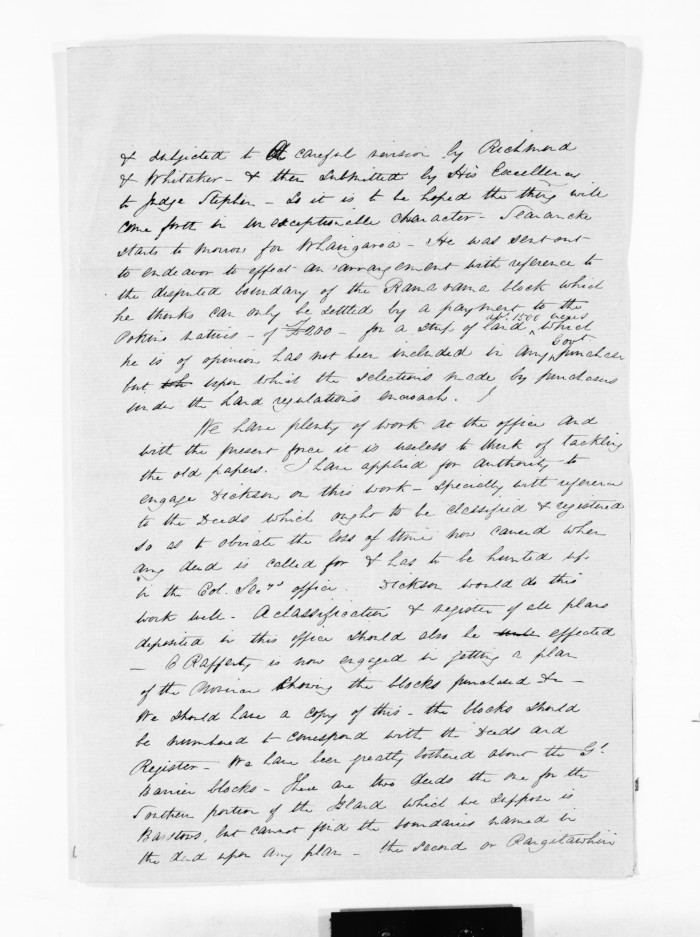 & subjected to a careful revision by Richmond
& Whitaker - & then submitted by His Excellency
to Judge Stephen - So it is to be hoped the thing will
come forth in unexceptionable character - Searancke
starts to morrow for Whaingaroa - He was sent out
to endeavor to effect an arrangement with reference to
the disputed boundary of the Rama rama block which
he thinks can only be settled by a payment to the
Pokino natives - of £200 - for a strip of land abt. 1500 acres which
he is of opinion has not been included in any Govt purchase
but upon which the selections made by purchasers
under the land regulations encroach.
We have plenty of work at the office and
with the present force it is useless to think of tackling
the old papers. I have applied for authority to
engage Dickson on this work - specially with reference
to the Deeds which ought to be classified & registered
so as to obviate the loss of time now caused when
any deed is called for & has to be hunted up
in the Col. Secy's office. Dickson would do this
work well - A classification & register of all plans
deposited in this office should also be effected
- C Rafferty is now engaged in getting a plan
of the Province showing the blocks purchased &c -
We should have a copy of this - the blocks should
be numbered to correspond with the Deeds and
Register - We have been greatly bothered about the Gt
Barrier blocks - There are two deeds the one for the
Southern portion of the Island which we suppose is
Barstows, but cannot find the boundaries named in
the deed upon any plan - the second or Rangitawhiri